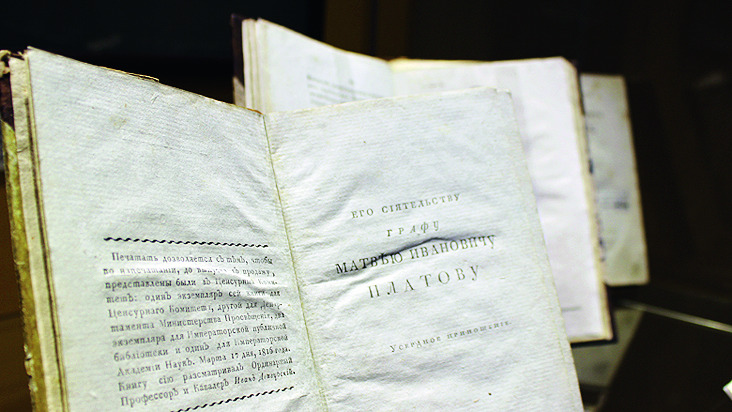 Печатать дозволяется съ тѣмъ, чтобы
по напечатаніи, до выпуска въ продажу,
представлены были въ Ценсурный Коми-
тетъ: одинъ экземпляръ сей книги для
Ценсурнаго Комитета, другой для Депар-
тамента Министерства Просвѣщенія, два
экземпляра для Императорской публичной
библіотеки и одинъ для Императорской
Академіи Наукъ. Марта 17 дня, 1813 года.
Книгу сію разсматривалъ Ординарный
Профессоръ и Кавалеръ Иванъ
ЕГО СІЯТЕЛЬСТВУ
ГРАФУ
МАТВѢЮ ИВАНОВИЧУ
ПЛАТОВУ
Усердное приношеніе.